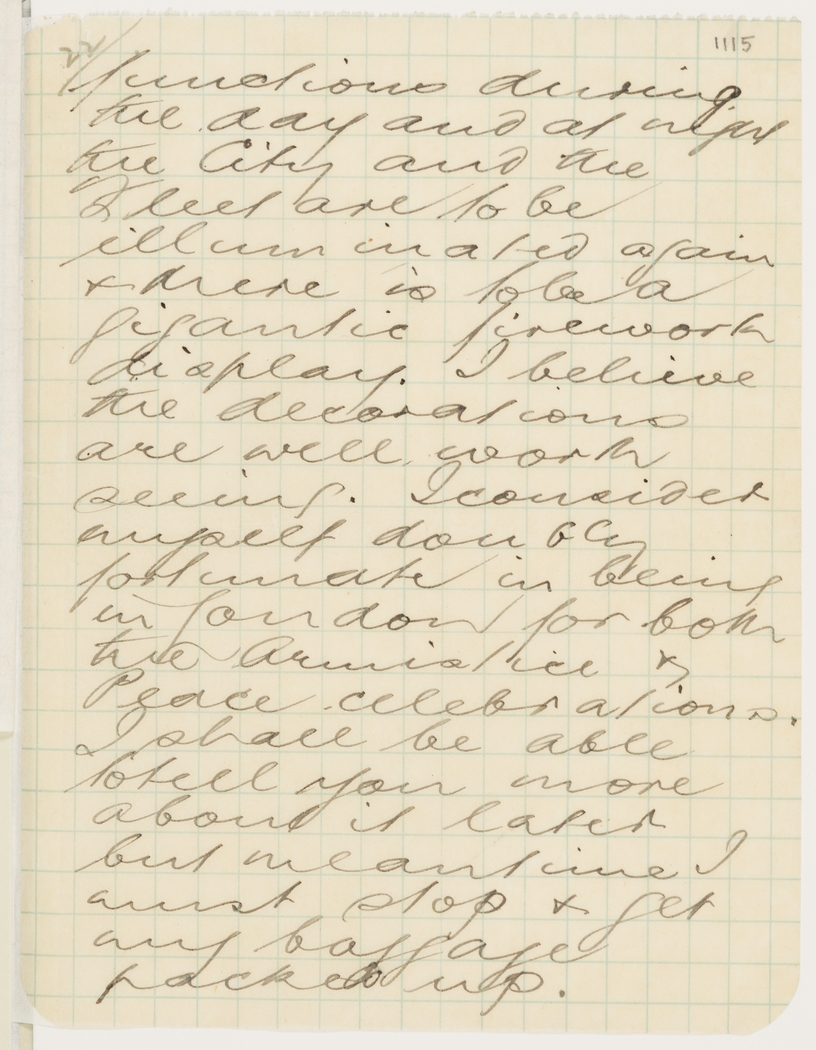 22/
1115
functions during
the day and at night
the City and the
Fleet are to be
illuminated again
& there is to be a
gigantic firework
display. I believe
the decorations
are well worth
seeing. I consider
myself doubly
fortunate in being
in London for both
the Armistice &
Peace celebrations.
I shall be able
to tell you more
about it later
but meantime I
must stop & get
my baggage
packed up.